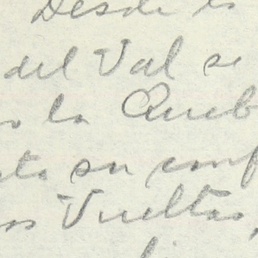 Desde
del Val se
la Queb
su conf
Vueltas,